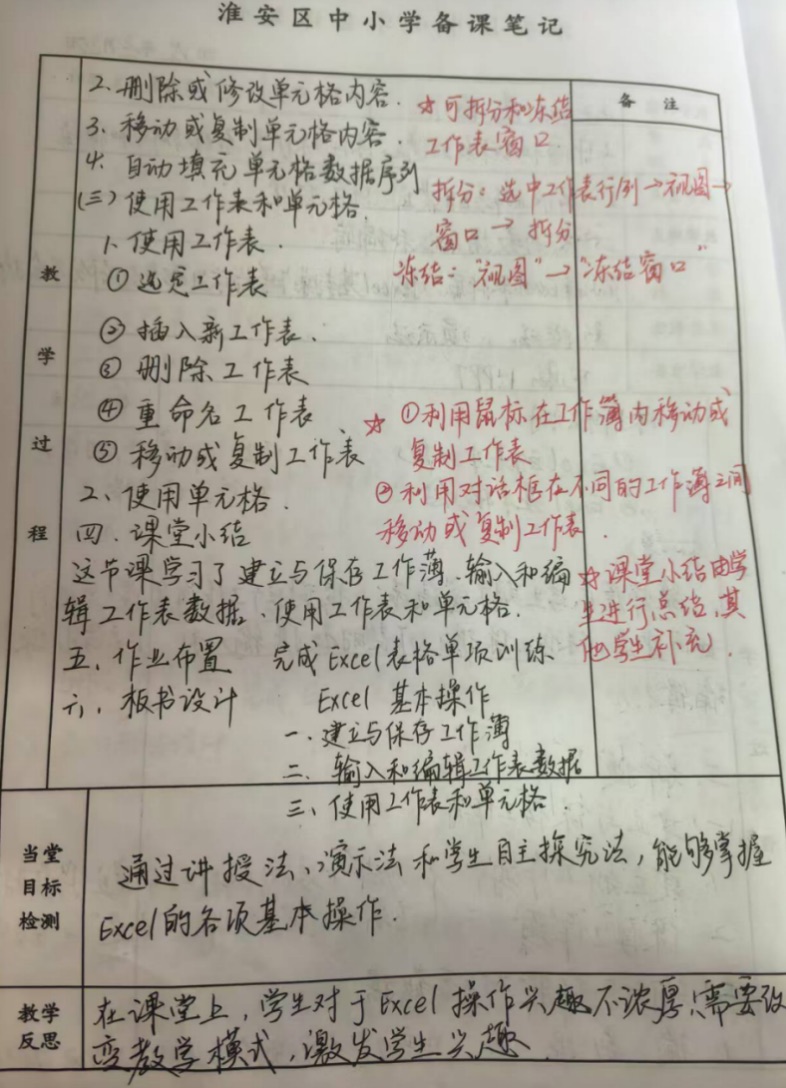 淮安区中小学备课笔记
备注
教学过程
2.删除或修改单元格内容.
3.移动或复制单元格内容.
4.自动填充单元格数据序列
(三)使用工作表和单元格.
1.使用工作表.
①选定工作表
②插入新工作表.
③删除工作表
④重命名工作表
⑤移动或复制工作表
2、使用单元格.
四.课堂小结
这节课学习了建立与保存工作薄、输入和编
辑工作表数据、使用工作表和单元格.
五、作业布置 完成Excel表格单项训练
六、板书设计 Excel 基本操作
一.建立与保存工作簿
二、输入和编辑工作表数据
三、使用工作表和单元格.
☆可拆分和冻结
工作表窗口
拆分:选中工作表行/列→视图→
窗口→拆分
冻结:"视图"→"冻结窗口"
☆①利用鼠标在工作簿内移动或
复制工作表
②利用对话框在不同的工作簿之间
移动或复制工作表.
☆课堂小结由学
生进行总结,其
他学生补充.
当堂
目标
检测
通过讲授法、演示法和学生自主探究法,能够掌握
Excel的各项基本操作.
教学
反思
在课堂上,学生对于Excel操作兴趣不浓厚,需要改
变教学模式,激发学生兴趣.